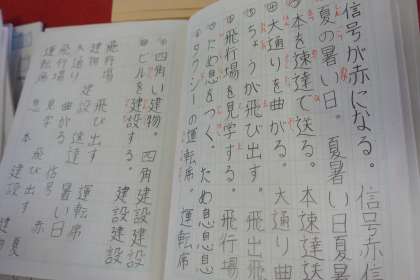 信号が赤になる。信号赤信
夏の暑い日。夏暑い日夏暑
本を速達で送る。本速達速
大通りを曲がる。大通り曲
ちょうが飛び出す。飛出飛
飛行場を見学する。飛行場
ため息をつく。ため息息息息
タクシーの運転席。運転席
四角い建物。四角建設建設
ビルを建設する。建設建設
飛行場 飛び出す 運転席
建物 建設 速達 暑い日
大通り 曲がる 信号 赤
飛行場 息 本 飛び出す
運転席 建設 夏